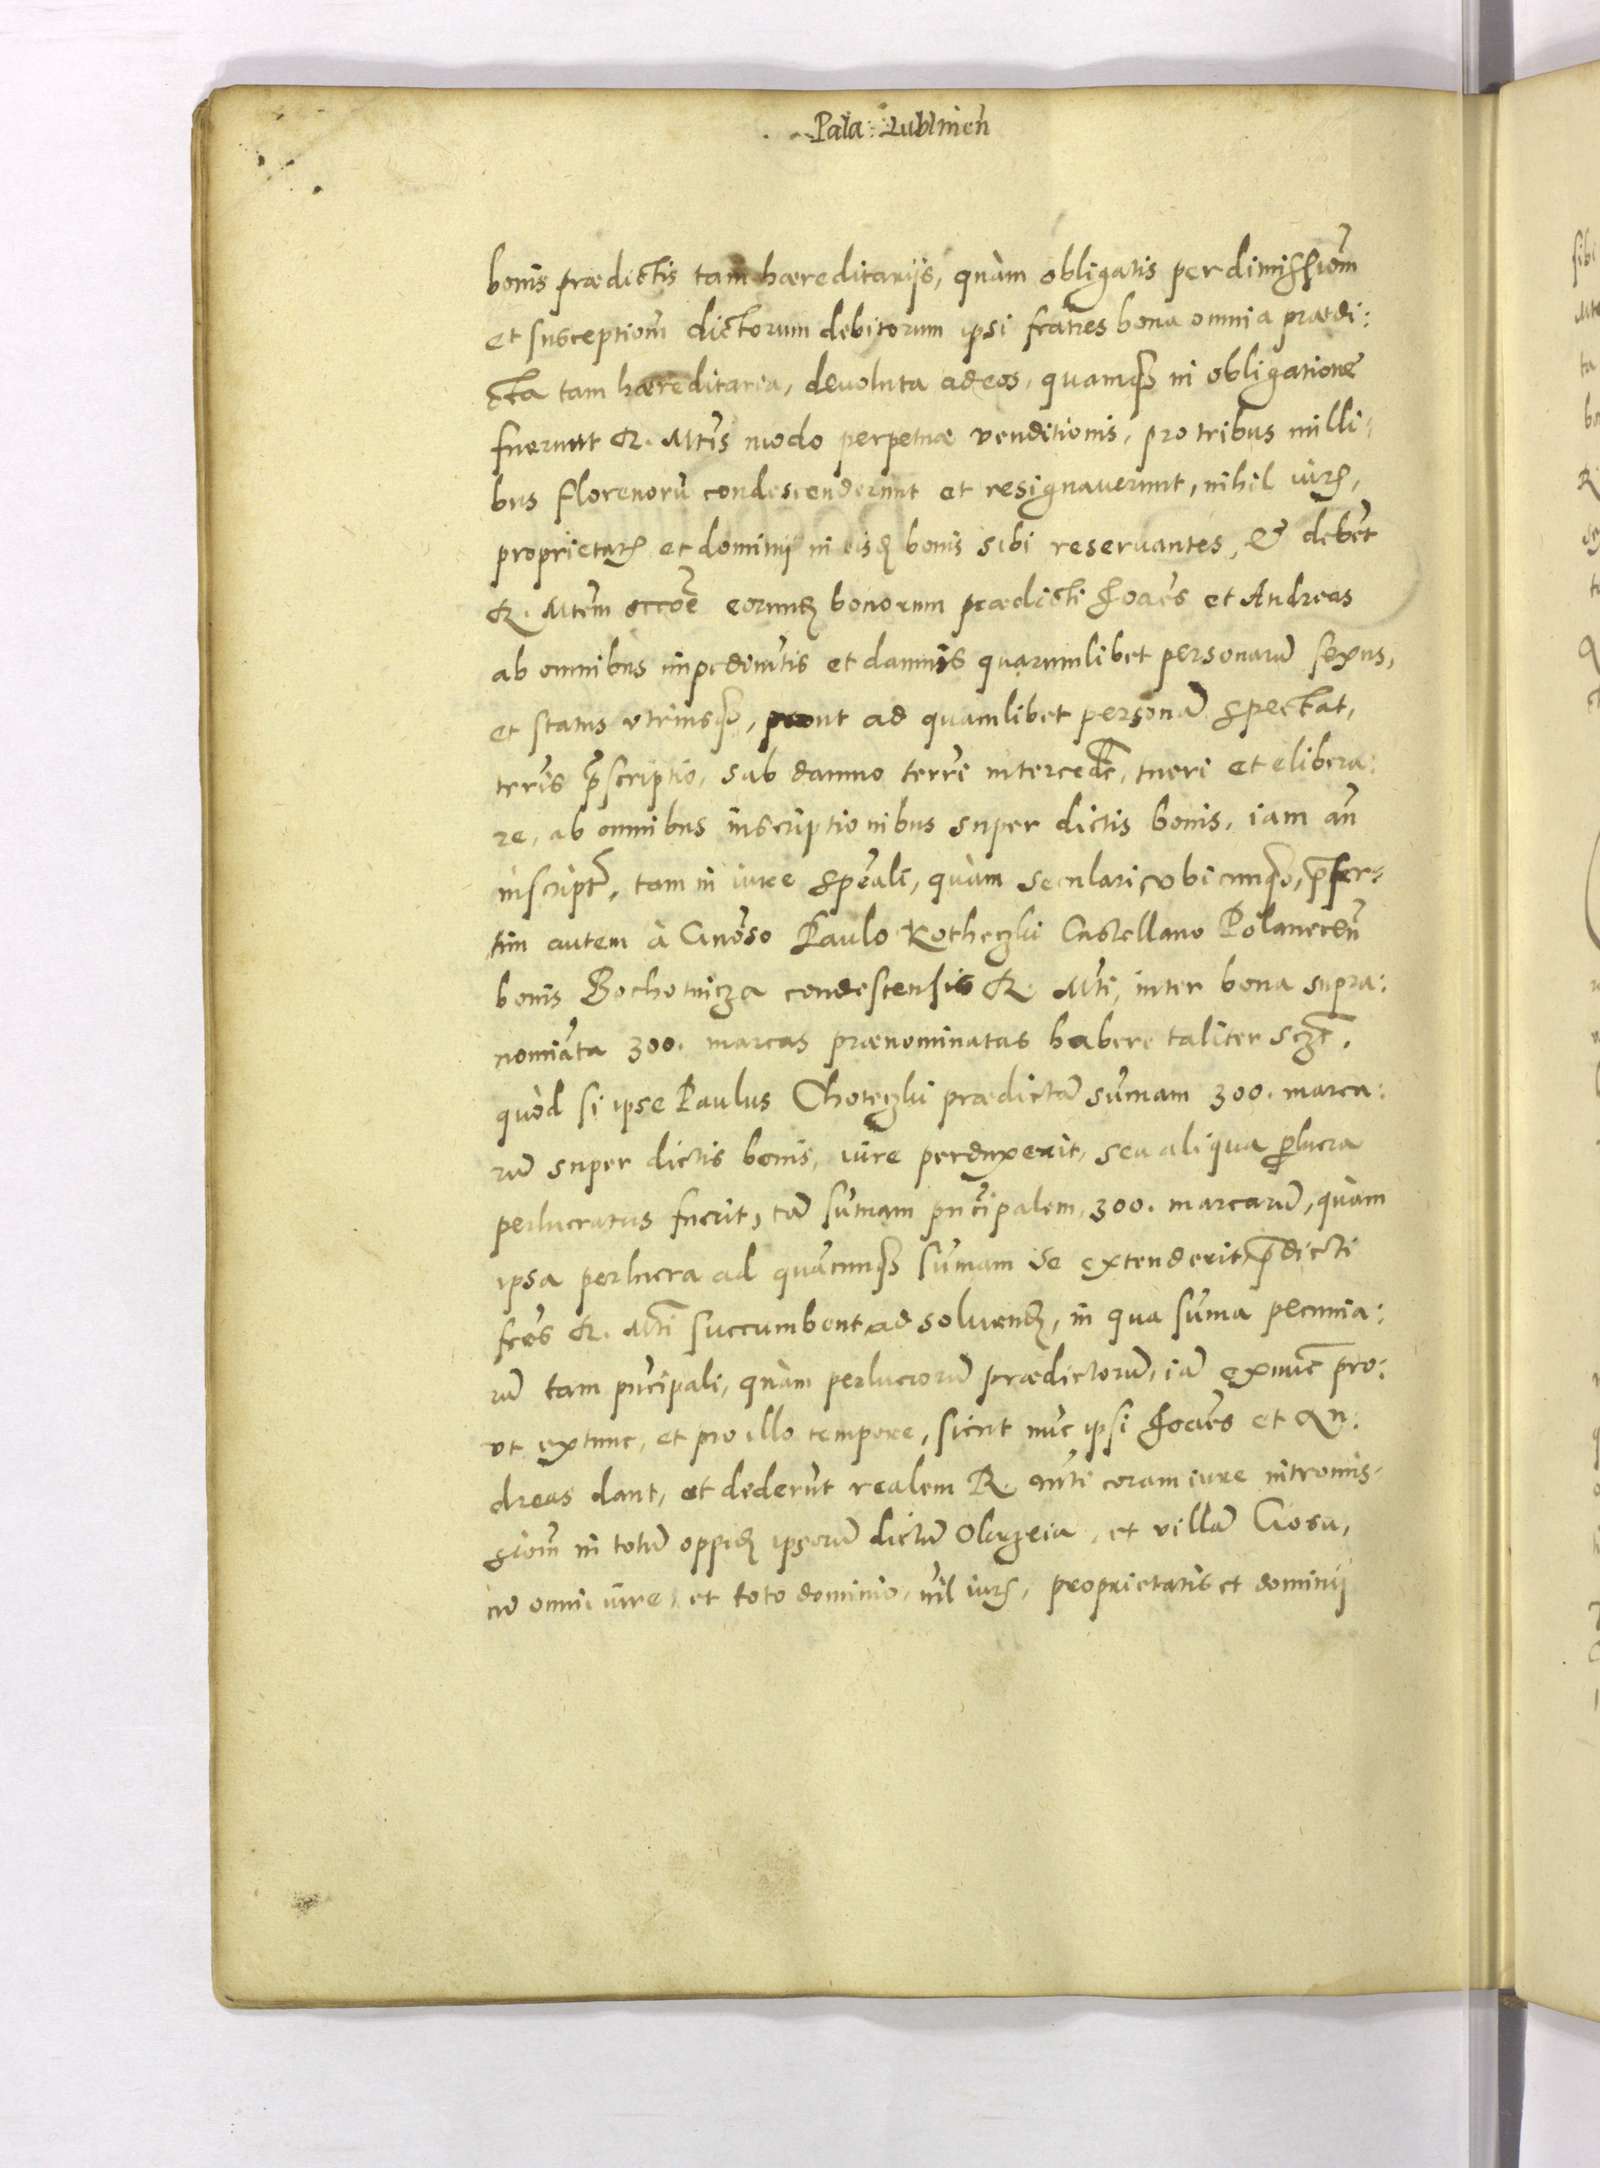 Pala: Lublinen̄
bonis prædictis tam hæreditarijs, quàm obligatis per dimissiom̄
et susceptiom̄ dictorum debitorum ipsi frātres bona omnia prædi:
cta tam hæreditaria, deuoluta ad eos, quamqȝ in obligatione
fuerunt R. Mtīs modo perpetuæ venditionis, pro tribus milli:
bus florenorū condescenderunt et resignauerunt, nihil iurꝭ,
proprietatꝭ et dominij in eisdꝫ bonis sibi reseruantes, & debēt
R. Mtēm occoē eorundꝫ bonorum prædicti Joañes et Andreas
ab omnibus impedimētis et damnis quarumlibet personarū sexus,
et status vtriusqȝ, prout ad quamlibet personā spectat,
terrīs p̄scriptio, sub damno terrē interceden̄, tueri et elibera:
re, ab omnibus inscriptionibus super dictis bonis, iam an̄
inscript̄, tam in iure spēali, quàm seculari, vbicunqȝ, p̄ser:
tim autem à Gnōso Paulo Kotheczki Castellano Polanecen̄
bonis Bochotnicza condescensis R. Mti, inter bona supra:
nomiāta 300. marcas prænominatas habere taliter sczt̄.
quòd si ipse Paulus Choteczki prædictā sum̄am 300. marca:
rū super dictis bonis, iure perduxerit, seu aliqua ꝑlucra
perlucratus fuerit, tā sum̄am prīcipalem, 300. marcarū, quàm
ipsa perlucra ad quācunqȝ sum̄am se extenderit, p̄dicti
frēs R. Mti succumbent ad soluendꝫ, in qua sum̄a pecunia:
rū tam prīcipali, quàm perlucrorū prædictorū, iā exnūc pro:
vt extunc, et pro illo tempore, sicut nūc ipsi Joañes et An:
dreas dant, et dederūt realem R. Mti coram iure intromis:
siom̄ in totū oppidꝫ ipsorū dictū Olczeia, et villā Giosu,
cū omni iure, et toto dominio, nil iurꝭ, proprietatis et dominij